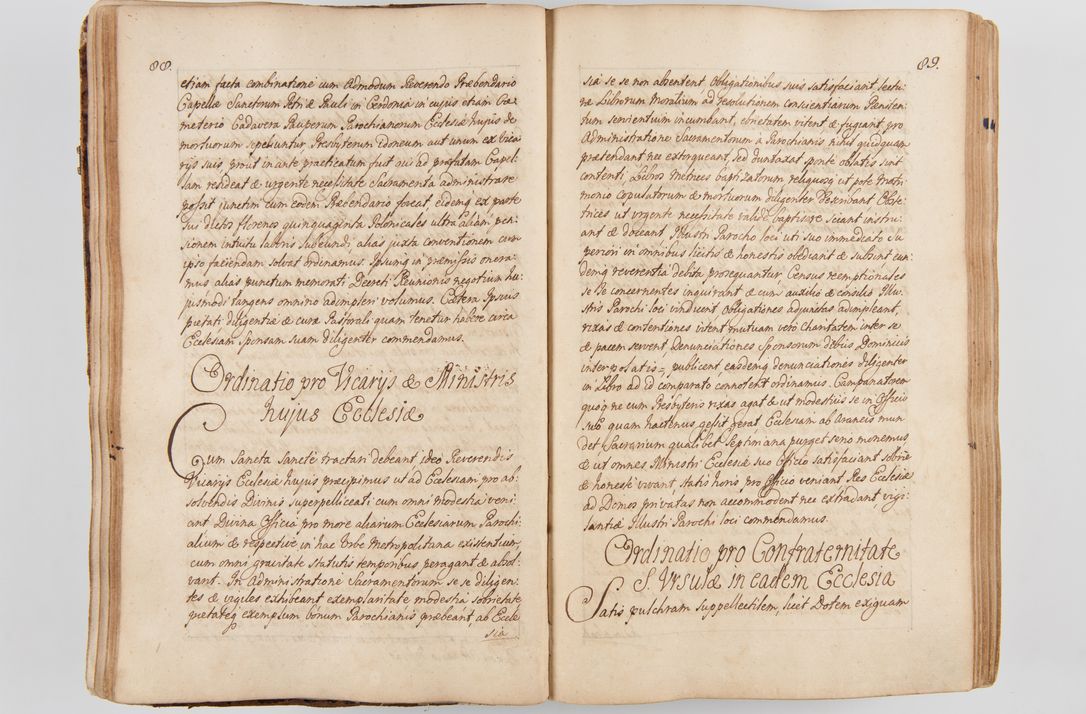 88.
etiam facta combinatione cum Admodum Reverendo Præbendario
Capellæ Sanctorum Petri & Pauli in cujus etiam Cæ
meterio Cadavera Pauperum Parochianorum Ecclesiæ hujus de
mortuorum sepeliuntur, Presbyterum idoneum aut unum ex Vica
rijs suis, prout in ante practicatum fuit qui ad præfatam Capel
lam resideat & urgente necessitate Sacramenta administrare
possit junctim cum eodem Præbendario foveat, eidemq ex parte
sus dictos florenos quinquaginta Polonicales ultra aliam pen
sionem intuitu laboris subeundi alias juxta conventionem cum
ipso faciendam solvat ordinamus. Ipsumq in præmissis onera
mus alias punctum memorati Decreti Reunionis negotium hu
jusmodi tangens omnino adimpleri volumus. Cætera Ipsius
pietati diligentiæ & curæ Pastorali quam tenetur habere circa
Ecclesiam Sponsam suam diligenter commendamus.
Ordinatio pro Vicarijs & Ministris
hujus Ecclesiæ
Cum Sancta Sanctè tractari debeant ideo Reverendis
Vicarijs Ecclesiæ hujus præcipimus ut ad Ecclesiam pro ab
solvendis Divinis superpelliceati cum omni modestia veni
ant Divina Officia pro more aliarum Ecclesiarum Parochi
alium & respectivè in hac Urbe Metropolitana existentium,
cum omni gravitate statutis temporibus peragant & absol
vant. In Administratione Sacramentorum se se diligen
tes & vigiles exhibeant exemplaritate modestia sobrietate
pietateq exemplum bonum Parochianis præbeant, ab Eccle
sia
89.
sia se se non absentent obligationibus suis satisfaciant, lectu
ræ Librorum Moralium ad resolutionem conscientiarum Pæniten
tium servientium incumbant, ebrietatem vitent & fugiant, pro
Administratione Sacramentorum à Parochianis nihil quidquam
prætendant nec extorqueant, sed duntaxat sponte oblatis sint
contenti, Libros Metrices baptizatorum reliquosq ut pote Matri
monio copulatorum & mortuorum diligenter describant Obste
trices ut urgente necessitate validè baptisare sciant instru
ant & doceant Illustri Parocho loci uti suo immediato Su
periori in omnibus licitis & honestis obediant & subint eun
demq reverentia debita prosequantur Census reemptionales
se se concernentes inquirant & cum auxilio & consilio Illu
stris Parochi loci vindicent obligationes adjunctas adimpleant,
rixas & contentiones vitent mutuam verò charitatem inter se
& pacem servent, Denunciationes Sponsorum debitis Dominicis
inter polatis publicent, easdemq denunciationes diligenter
in Libro ad id comparato connotent ordinamus. Campanatorem
quoq ne cum Presbyteris rixas agat & ut modestius se in Officio
suo quam hactenus gessit gerat Ecclesiam ab Araneis mun
det, Sacrarium qualibet septimana purget serio monemus
& ut omnes Ministri Ecclesiæ suo Officio satisfaciant sobriè
& honestè vivant statis horis pro Officio veniant Res Ecclesiæ
ad Domos privatas non accommodent nec extradant, vigi
lantiæ Illustri Parochi loci commendamus.
Ordinatio pro Confraternitate
S. Ursulæ in eadem Ecclesia
Satis pulchram suppellectilem, licet Dotem exiguam